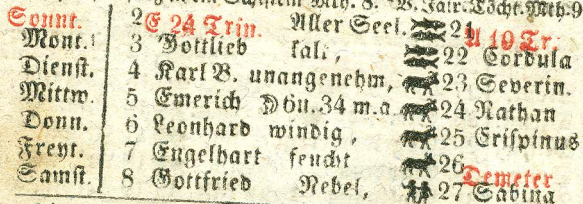 Sonnt. 2 E 24 Trin. Aller Seel. 21 A 19 Tr.
Mont. 3 Gottlieb kalt, 22 Cordula
Dienst. 4 Karl B. unangenehm, 23 Severin.
Mittw. 5 Emerich ☽ 6 u. 34 m. a. 24 Nathan
Donn. 6 Leonhard windig, 25 Crispinus
Freyt. 7 Engelhart feucht 26 Demeter
Samst. 8 Gottfried Nebel, 27 Sabina